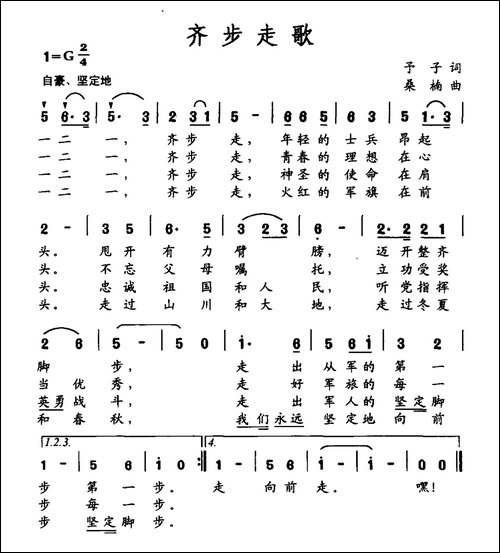 齐步走歌
1=G 2/4
自豪、坚定地
予 子 词
桑 楠 曲
5 6·3 | 5·3 | 2 31 | 5 - | 66 5 | 6 3 | 5 5 | 1·3 |
一二 一, 齐步 走, 年轻的 士兵 昂起
一二 一, 齐步 走, 青春的 理想 在心
一二 一, 齐步 走, 神圣的 使命 在肩
一二 一, 齐步 走, 火红的 军旗 在前
2 - | 3 5 | 6· 5 | 3 23 | 5 - | 2·2 22 1 |
头。 甩开 有力 臂 膀, 迈开整齐
头。 不忘 父母 嘱 托, 立功受奖
头。 忠诚 祖国 和人 民, 听党指挥
头。 走过 山川 和大 地, 走过冬夏
2 6 | 5 - | 5 0 | 1· 6 | 5 61 | 3 2 |
脚 步, 走 出 从军的 第一
当 优 秀, 走 好 军旅的 每一
英勇战 斗, 走 出 军人的 坚定脚
和春 秋, 我们永远 坚定地 向前
1.2.3. 4.
1 - | 5 6 | 1 0 :| 1 - | 56 6 | 1 - | 1 - | 00 ||
步 第一 步。 走 向前 走。 嘿!
步 每一 步。
步 坚定脚步。